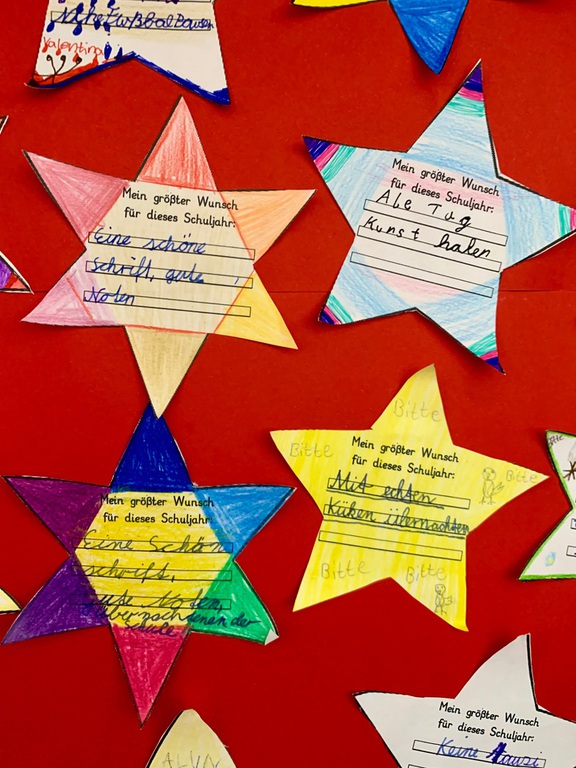 Valentina
Mein größter Wunsch
für dieses Schuljahr:
Eine schöne
Schrift, gute,
Noten
Mein größter Wunsch
für dieses Schuljahr:
Ale Tag
Kunst haben
Mein größter Wunsch
für dieses Schuljahr:
Eine Schön
schrift,
gute Noten,
der
Schule
Bitte
Bitte
Mein größter Wunsch
für dieses Schuljahr:
Bitte
Mit echten
Küken
Bitte
Bitte
Mein größter Wunsch
für dieses Schuljahr:
Keine